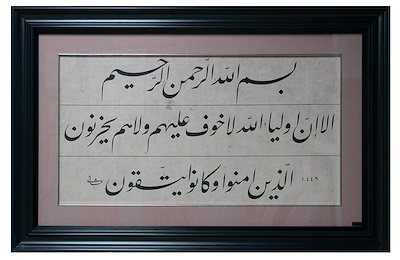 بسم الله الرحمن الرحيم
الا ان اولياء الله لا خوف عليهم ولا هم يحزنون
الذين امنوا وكانوا يتقون ١٤٤٦